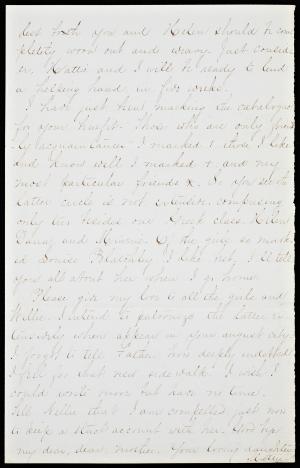 lest both you and Helen should be com
pletely worn out and weary just consid
er, Hattie and I will be ready to lend
a helping hand in five weeks.
I have just been marking the catalogue
for your benefit. Those who are only friendly
acquaintances I marked + those I like
and know well I marked and my
most particular friends x. So you see the
latter circle is not extensive comprising
only besides our Greek class Helen
and Minnie. Of the girls so mark
ed Louise I like her, I'll tell
you all about her when I go home.
Please give my love to all the girls and
Willie. I intend to patronize the latter ex
tensively when appear in your august city.
I forgot to tell Father how deeply indebted
I feel for that new sidewalk. I wish I
could write more but have no time.
Tell Nellie that I am compelled just now
to keep a strict account with her. Good bye
my dear, dear, mother. Your loving daughter